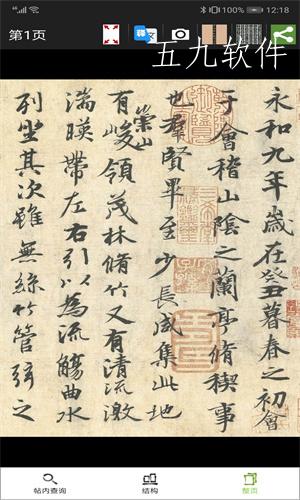 12:18
第1页
五九软件
永和九年歲在癸丑暮春之初會
于會稽山陰之蘭亭脩稧事
也羣賢畢至少長咸集此地
有崇山峻領茂林脩竹又有清流激
湍暎帶左右引以為流觴曲水
列坐其次雖無絲竹管弦之
帖内查询
结构
整页